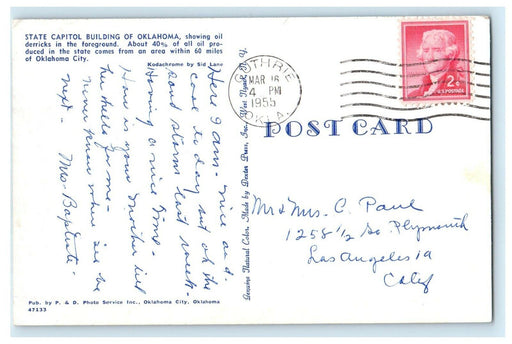 STATE CAPITOL BUILDING OF OKLAHOMA, showing oil
derricks in the foreground. About 40% of all oil pro-
duced in the state comes from an area within 60 miles
of Oklahoma City.
Kodachrome by Sid Lane
Here I am - nice and
cool to day but oh the
sand storms last week -
Having a nice time -
How is your Mother tell
her hello for me -
never know where I'll be
next - Mrs. Baptiste -
Pub. by P. & D. Photo Service Inc., Oklahoma City, Oklahoma
47133
Genuine Natural Color, Made by Dexter Press, Inc. West Nyack, N. Y.
GUTHRIE
MAR 16
4 PM
1955
OKLA.
2¢
U.S. POSTAGE
POST CARD
Mr & Mrs. C. Paul
1258 1/2 So. Plymouth
Los Angeles 19
Calif